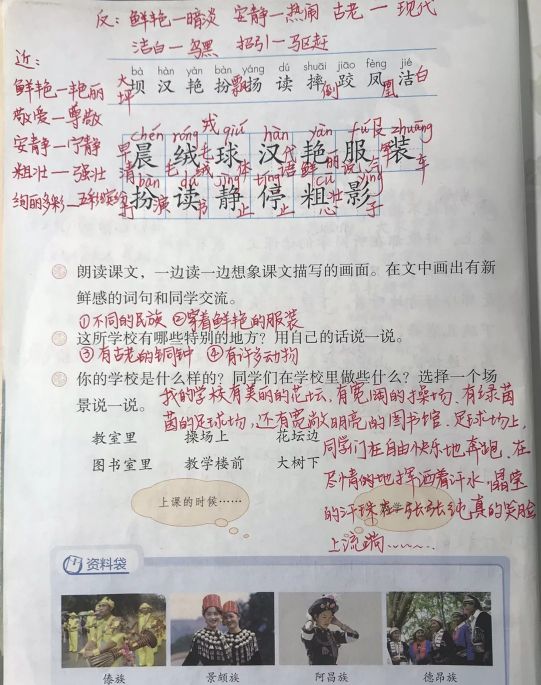 反：鲜艳—暗淡 安静—热闹 古老—现代
洁白—乌黑 招引—驱赶
近：
鲜艳—艳丽
敬爱—尊敬
安静—宁静
粗壮—强壮
绚丽多彩—五彩缤纷
bà hàn yàn bàn yáng dú shuāi jiāo fèng jié
大坝 汉 艳 扮 飘扬 读 摔倒 跤 凤凰 洁白
坪
chén róng qiú hàn yàn fú zhuāng
晨 绒 球 汉 艳 服 装
早 毛绒 体 代 语 鲜 丽 衣 车
bàn dú jìng tíng cū yǐng
扮 读 静 停 粗 影
打 演 书 止 止 心 壮 手
朗读课文，一边读一边想象课文描写的画面。在文中画出有新
鲜感的词句和同学交流。
①不同的民族 ②穿着鲜艳的服装
这所学校有哪些特别的地方？用自己的话说一说。
③有古老的铜钟 ④有许多动物
你的学校是什么样的？同学们在学校里做些什么？选择一个场
景说一说。
我的学校有美丽的花坛，有宽阔的操场，有绿茵
茵的足球场，还有宽敞明亮的图书馆。足球场上，
同学们在自由快乐地奔跑，在
尽情的地挥洒着汗水，晶莹
的汗珠在一张张纯真的笑脸
上流淌……
教室里 操场上 花坛边
图书室里 教学楼前 大树下
上课的时候……
资料袋
傣族 景颇族 阿昌族 德昂族